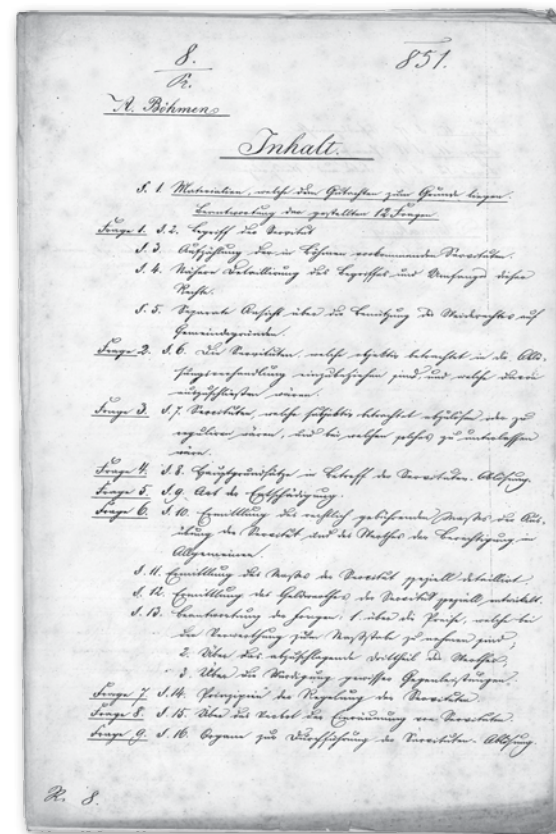 8.
R.
851.
A. Böhmen
Inhalt.
§. 1. Materialien, welche dem Gutachten zum Grunde liegen.
Beantwortung der gestellten 12 Fragen.
Frage 1. §. 2. Begriff der Servitut
§. 3. Aufzählung der in Böhmen vorkommenden Servituten.
§. 4. Nähere Detaillirung des Begriffes und Umfanges dieser
Rechte.
§. 5. Separate Ansicht über die Benützung des Weiderechtes auf
Gemeindegründen.
Frage 2. §. 6. Die Servituten, welche objektiv betrachtet in die Ablö-
sungsverhandlung einzubeziehen sind, und welche davon
auszuschließen wären.
Frage 3. §. 7. Servituten, welche subjektiv betrachtet abzulösen oder zu
reguliren wären, und bei welchen solches zu unterlassen
wäre.
Frage 4. §. 8. Hauptgrundsätze in Betreff der Servituten-Ablösung.
Frage 5. §. 9. Art der Entschädigung.
Frage 6. §. 10. Ermittlung des rechtlich gebührenden Maßes der Aus-
übung der Servitut und des Werthes der Berechtigung im
Allgemeinen.
§. 11. Ermittlung des Maßes der Servitut speziell detaillirt.
§. 12. Ermittlung des Geldwerthes der Servitut speziell entwickelt.
§. 13. Beantwortung der Fragen: 1. über die Preise, welche bei
der Verwerthung zum Maßstabe zu nehmen sind;
2. Über das abzuschlagende Drittheil des Werthes;
3. Über die Würdigung gewisser Gegenleistungen.
Frage 7. §. 14. Prinzipien der Regelung der Servituten.
Frage 8. §. 15. Über das Verbot der Einräumung von Servituten.
Frage 9. §. 16. Organe zur Durchführung der Servituten-Ablösung.
R. 8.